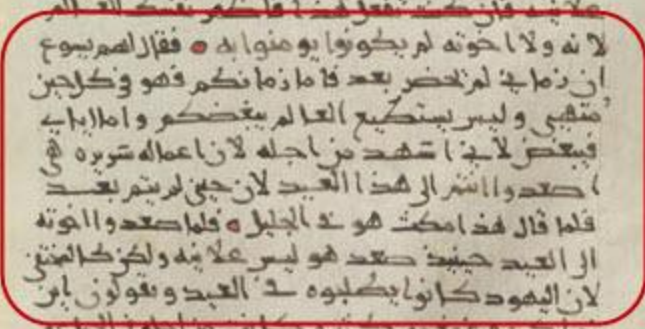 علانيه فان كنت تفعل هذا فاظهر نفسك للعالم
لانه ولا اخوته لم يكونوا يومنوا به فقال لهم يسوع
ان زماني لم يحضر بعد فاما زمانكم فهو في كل حين
متهيي وليس يستطيع العالم يبغضكم واما اياي
فيبغض لاني اشهد من اجله لان اعماله شريره هي
اصعدوا انتم الى هذا العيد لان حيني لم يتم بعد
فلما قال هذا مكث هو في الجليل فلما صعدوا اخوته
الى العيد حينيذ صعد هو ليس علانيه ولكن كالمختفي
لان اليهود كانوا يطلبوه في العيد ويقولون اين